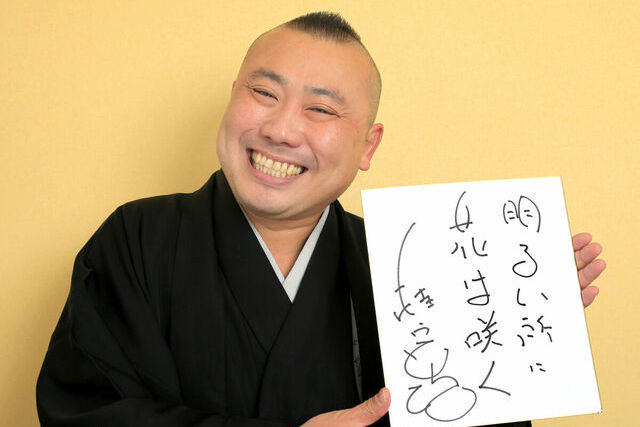 明るい所に
花は咲く